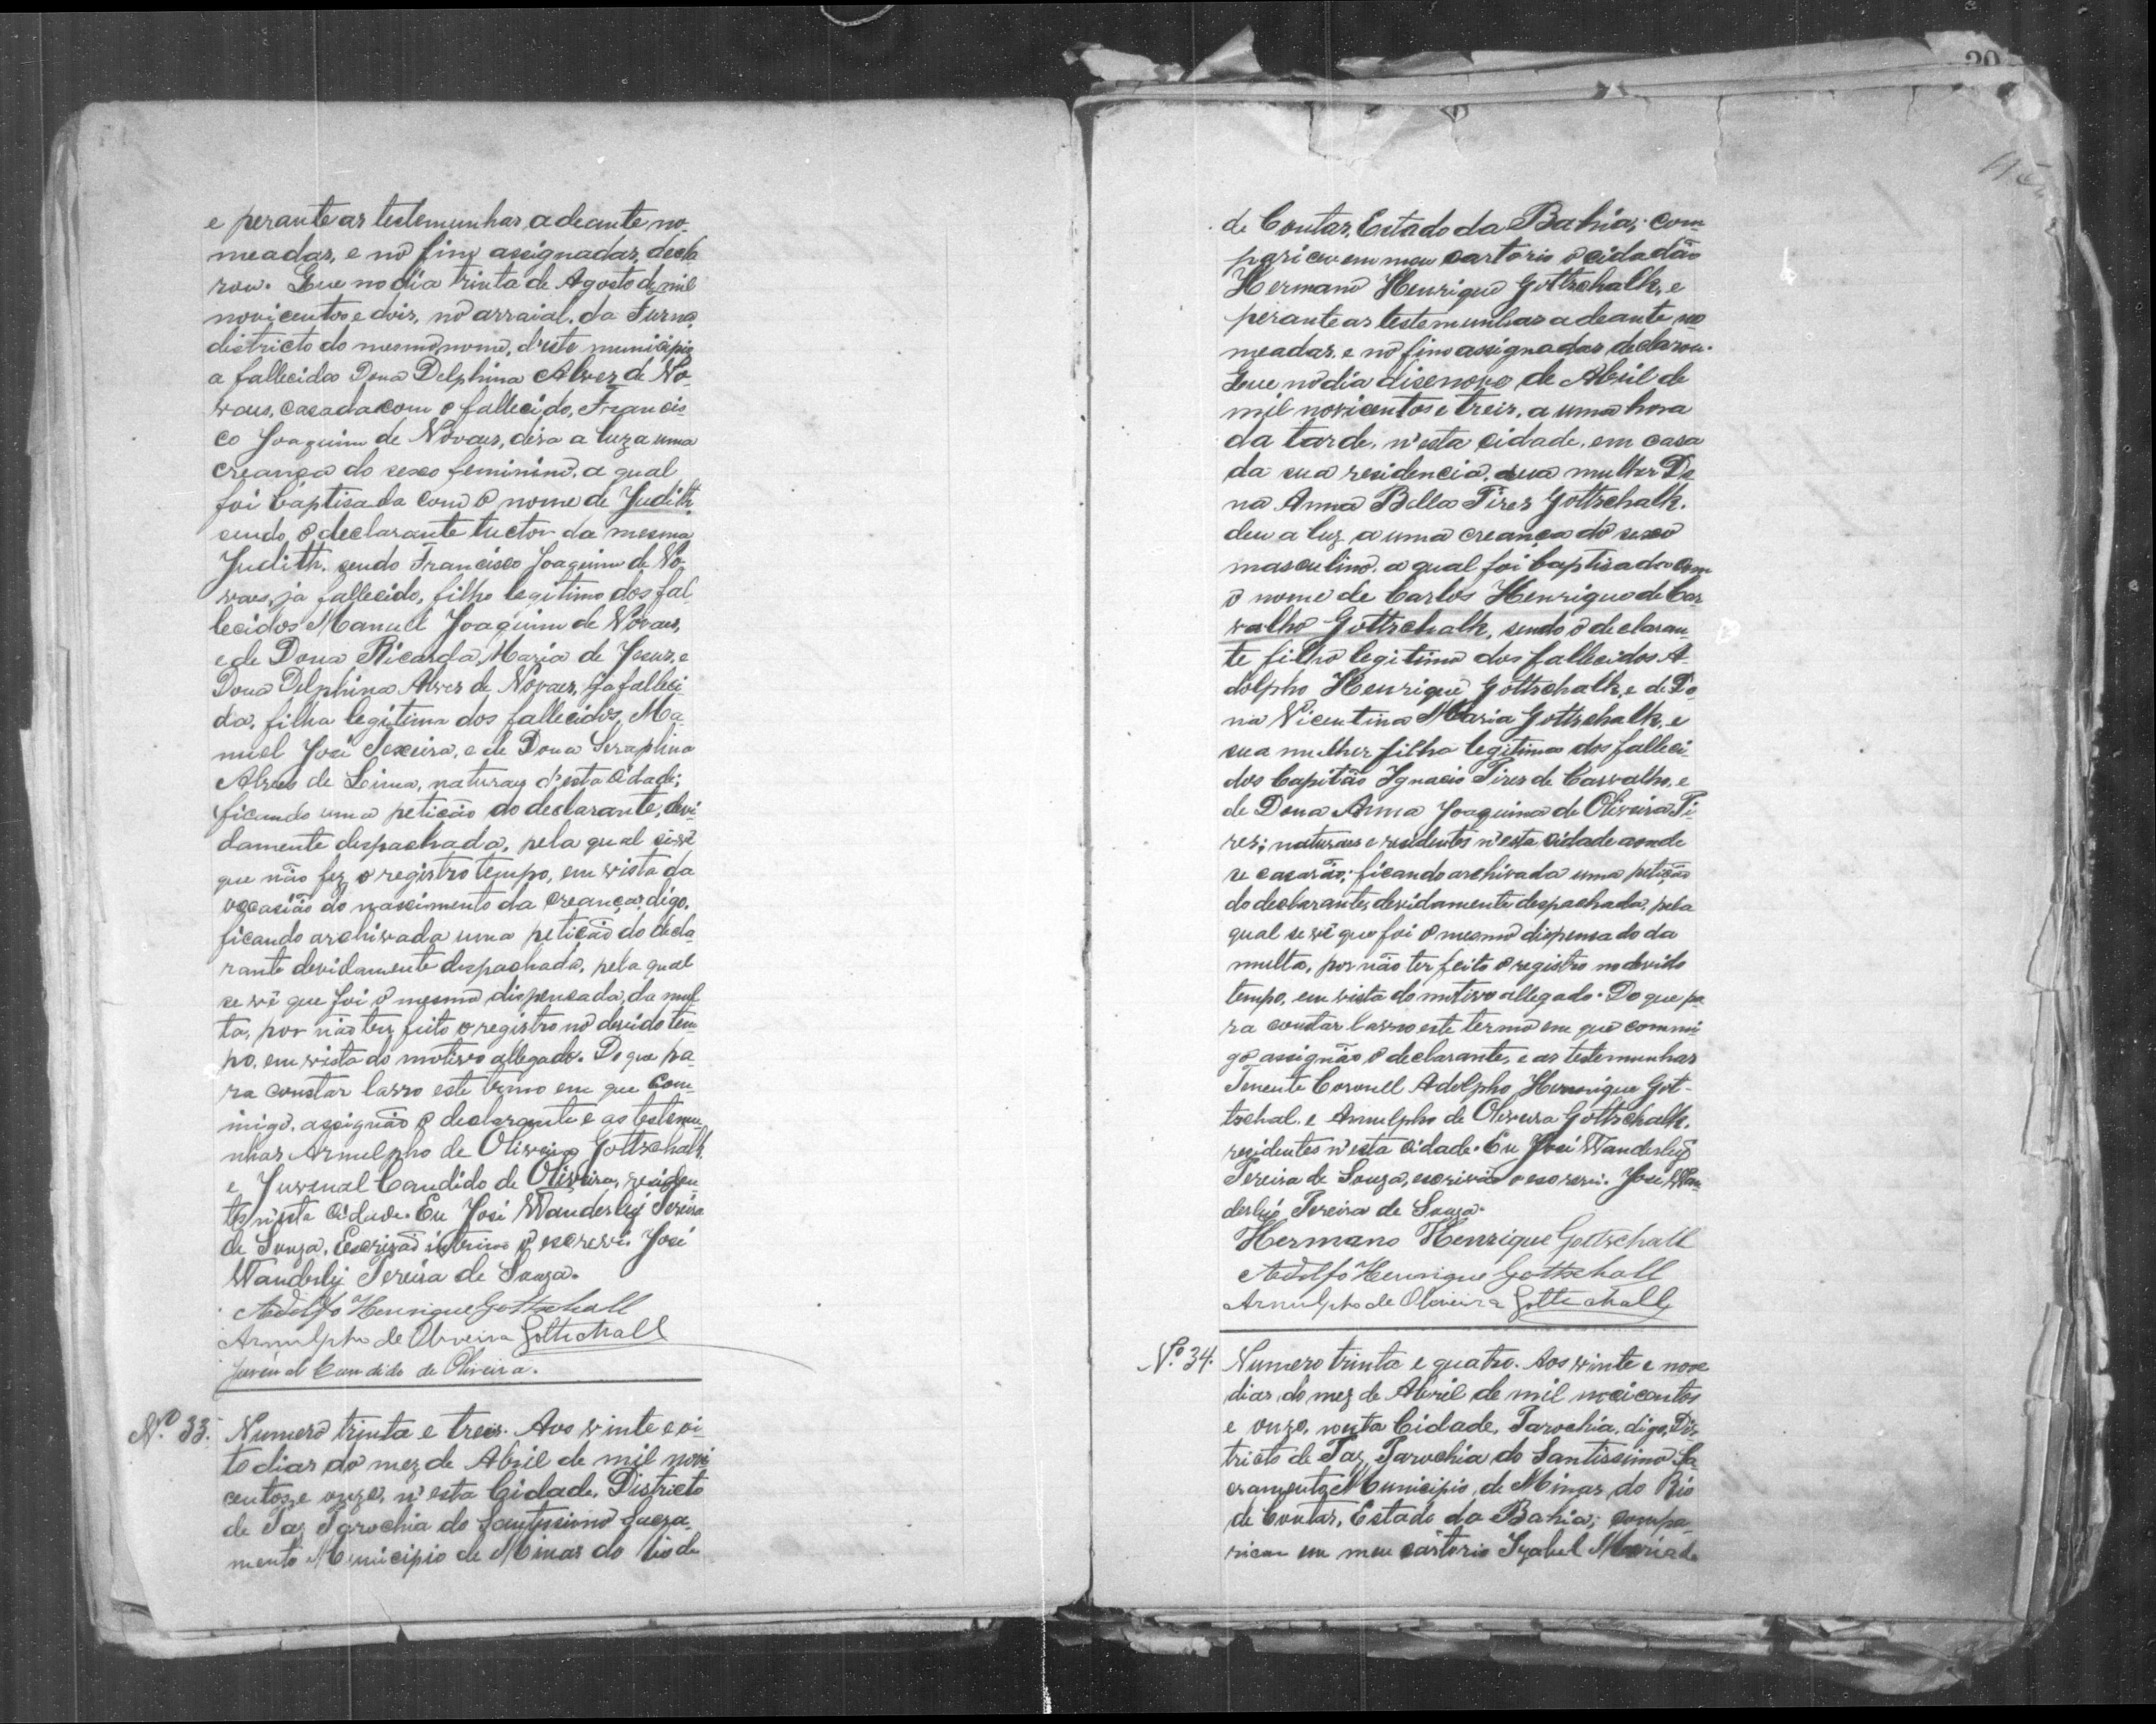 e perante as testemunhas adeante no-
meadas, e no fim assignadas, decla
rou. Que no dia trinta de Agosto de mil
novicentos e dois, no arraial da Furna,
districto do mesmo nome, d'este municipio
a fallecida Dona Delphina Alves de No-
vaes, casada com o fallecido, Francis
co Joaquim de Novaes, déra a luz a uma
creança do sexo feminino, a qual
foi baptisada com o nome de Judith,
sendo o declarante tuctor da mesma
Judith, sendo Francisco Joaquim de No-
vaes, já fallecido, filho legitimo dos fal-
lecidos Manuel Joaquim de Novaes,
e de Dona Ricarda Maria de Jesus, e
Dona Delphina Alves de Novaes, já falleci-
da, filha legitima dos fallecidos Ma-
nuel José Texeira, e de Dona Seraphina
Alves de Lima, naturaes d'esta Cidade;
ficando uma petição do declarante, devi-
damente despachada, pela qual se vê
que não fez o registro tempo, em vista da
occasião do nascimento da creança, digo,
ficando archivada uma petição do decla-
rante devidamente despachada, pela qual
se vê que foi o mesmo dispensada, da mul-
ta, por não ter feito o registro no devido tem-
po, em vista do motivo allegado. Do que pa-
ra constar lavro este termo em que com-
migo, assignão o declarante e as testemu-
nhas Arnulpho de Oliveira Gottschalk,
e Juvenal Candido de Oliveira, residen-
tes n'esta Cidade. Eu José Wanderley Pereira
de Souza, Escrivão interino o escrevi. José
Wanderley Pereira de Souza.
Adolfo Henrique Gottschall
Arnulpho de Oliveira Gottschall
Juvenal Candido de Oliveira.
Nº 33. Numero trinta e treis. Aos vinte e oi-
to dias do mez de Abril de mil novi-
centos e onze, n'esta Cidade, Districto
de Paz, Parochia do Santissimo Sacra-
mento Municipio de Minas do Rio de
de Contas, Estado da Bahia; com-
pariceu em meu cartorio o cidadão
Hermano Henrique Gottschalk, e
perante as testemunhas adeante no
meadas, e no fim assignadas declarou.
Que no dia disenove de Abril de
mil novicentos e treis, a uma hora
da tarde, n'esta cidade, em casa
da sua residencia, sua mulher Do
na Anna Bella Pires Gottschalk,
deu a luz a uma creança do sexo
masculino, a qual foi baptisado com
o nome de Carlos Henrique de Car
valho Gottschalk, sendo o declaran-
te filho legitimo dos fallecidos A-
dolpho Henrique Gottschalk, e de Do-
na Vicentina Maria Gottschalk, e
sua mulher filha legitima dos falleci-
dos Capitão Ignacio Pires de Carvalho, e
de Dona Anna Joaquina de Oliveira Pi-
res; naturaes e residentes n'esta Cidade aonde
se casarão; ficando archivada uma petição
do declarante, devidamente despachada, pela
qual se vê que foi o mesmo dispensado da
multa, por não ter feito o registro no devido
tempo, em vista do motivo allegado. Do que pa-
ra constar lavro este termo em que commi-
go assignão o declarante, e as testemunhas
Tenente Coronel Adolpho Henrique Got-
tschal. e Arnulpho de Oliveira Gottschalk,
residentes n'esta Cidade. Eu José Wanderley
Pereira de Souza, escrivão o escrevi. José Wan-
derley Pereira de Souza.
Hermano Henrique Gottschall
Adolfo Henrique Gottschall
Arnulpho de Oliveira Gottschall
Nº 34. Numero trinta e quatro. Aos vinte e nove
dias do mez de Abril de mil novicentos
e onze, nesta Cidade, Parochia, digo, Dis-
tricto de Paz, Parochia do Santissimo Sa-
cramento, Municipio, de Minas do Rio
de Contas, Estado da Bahia; compa-
riceu em meu cartorio Izabel Maria de